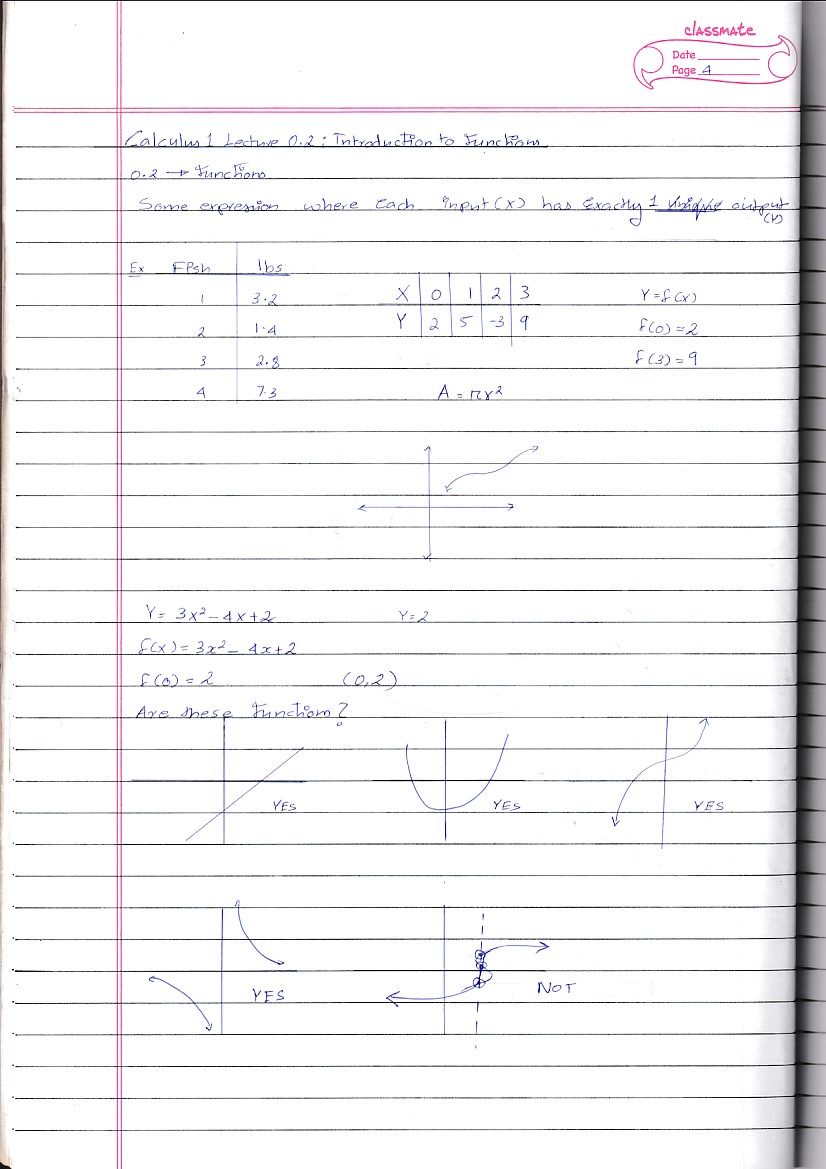 classmate
Date
Page 4
Calculus 1 Lecture 0.2 : Introduction to Functions
0.2 → Functions
Some expression where Each input (X) has Exactly 1 output
(Y)
Ex FPsh lbs
1 3.2
2 1.4
3 2.8
4 7.3
X 0 1 2 3
Y 2 5 -3 9
Y = f(x)
f(0) = 2
f(3) = 9
A = πr²
Y = 3x² - 4x + 2 Y = 2
f(x) = 3x² - 4x + 2
f(0) = 2 (0,2)
Are these Functions?
YES YES YES
YES NOT